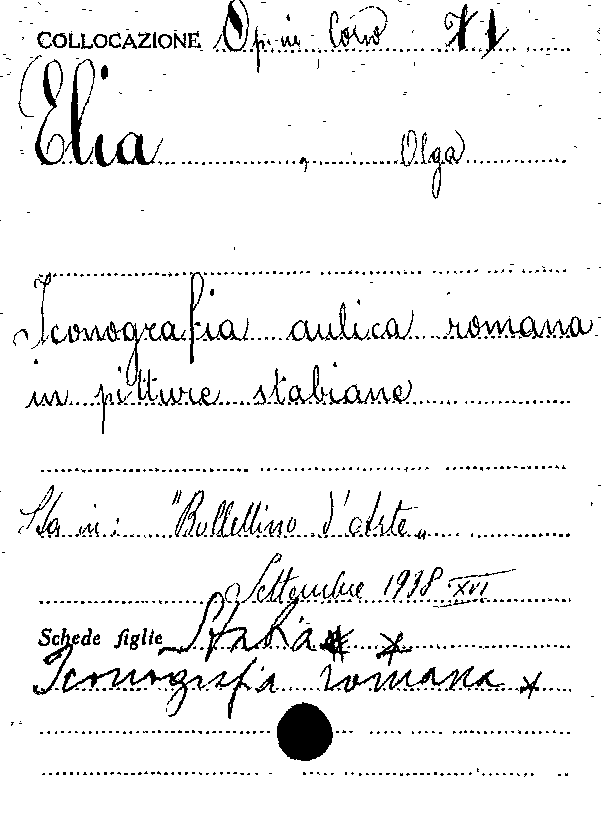 COLLOCAZIONE Op. in Corso 71
Elia, Olga
Iconografia aulica romana
in pitture stabiane
Sta in: "Bollettino d'Arte„
Settembre 1938 XVI
Schede figlie Stabia * *
Iconografia romana *